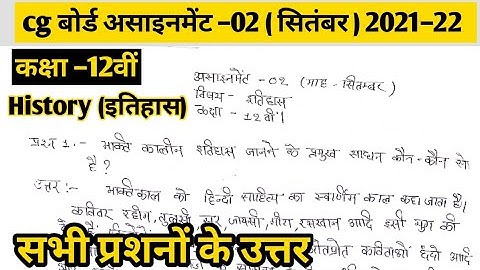 cg बोर्ड असाइनमेंट –02 ( सितंबर ) 2021–22
कक्षा –12वीं
History (इतिहास)
असाइनमेंट - 02 (माह - सितम्बर)
विषय - इतिहास
कक्षा - 12वीं
प्रश्न 1.- भक्ति कालीन इतिहास जानने के प्रमुख साधन कौन-कौन से
है ?
उत्तर :- भक्तिकाल को हिन्दी साहित्य का स्वर्णिम काल कहा जाता है।
कविवर रहीम, तुलसी, सूर, जायसी, मीरा, रसखान आदि इसी युग की
ओतप्रोत कविताओं छंदो आदि
सभी प्रशनों के उत्तर